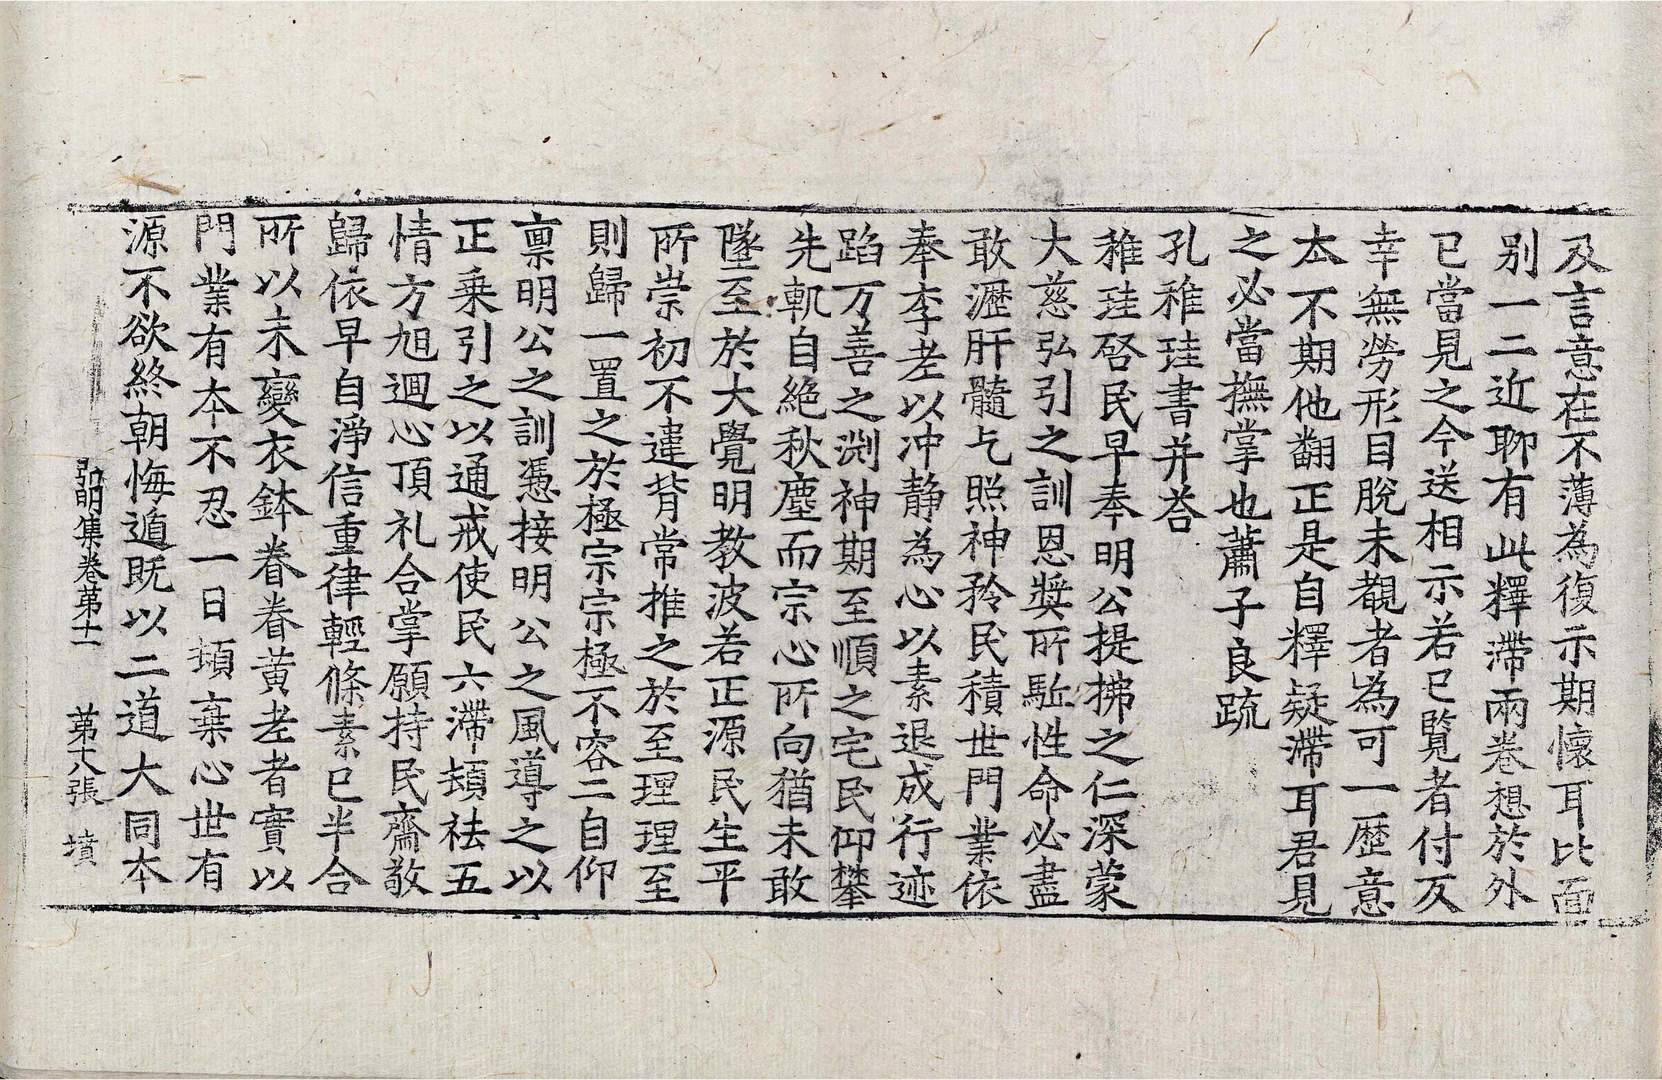 及言意在不薄為復示期懷耳比面
别一二近聊有此釋滯兩卷想於外
已當見之今送相示若已覧者付反
幸無勞形目脫未覩者為可一歷意
本不期他翻正是自釋疑滯耳君見
之必當撫掌也蕭子良疏
孔稚珪書并荅
稚珪啓民早奉明公提拂之仁深蒙
大慈弘引之訓恩奬所駈性命必盡
敢瀝肝髓乞照神矜民積世門業依
奉李老以冲静為心以素退成行迹
蹈万善之渕神期至順之宅民仰攀
先軌自絶秋塵而宗心所向猶未敢
墜至於大覺明教波若正源民生平
所崇初不違背常推之於至理理至
則歸一置之於極宗宗極不容二自仰
禀明公之訓憑接明公之風導之以
正乗引之以通戒使民六滯頓祛五
情方旭迴心頂礼合掌願持民齋敬
歸依早自淨信重律輕條素已半合
所以未變衣鉢眷眷黄老者實以
門業有本不忍一日頓棄心世有
源不欲終朝悔遁既以二道大同本
弘明集卷第十一 第十八張 墳